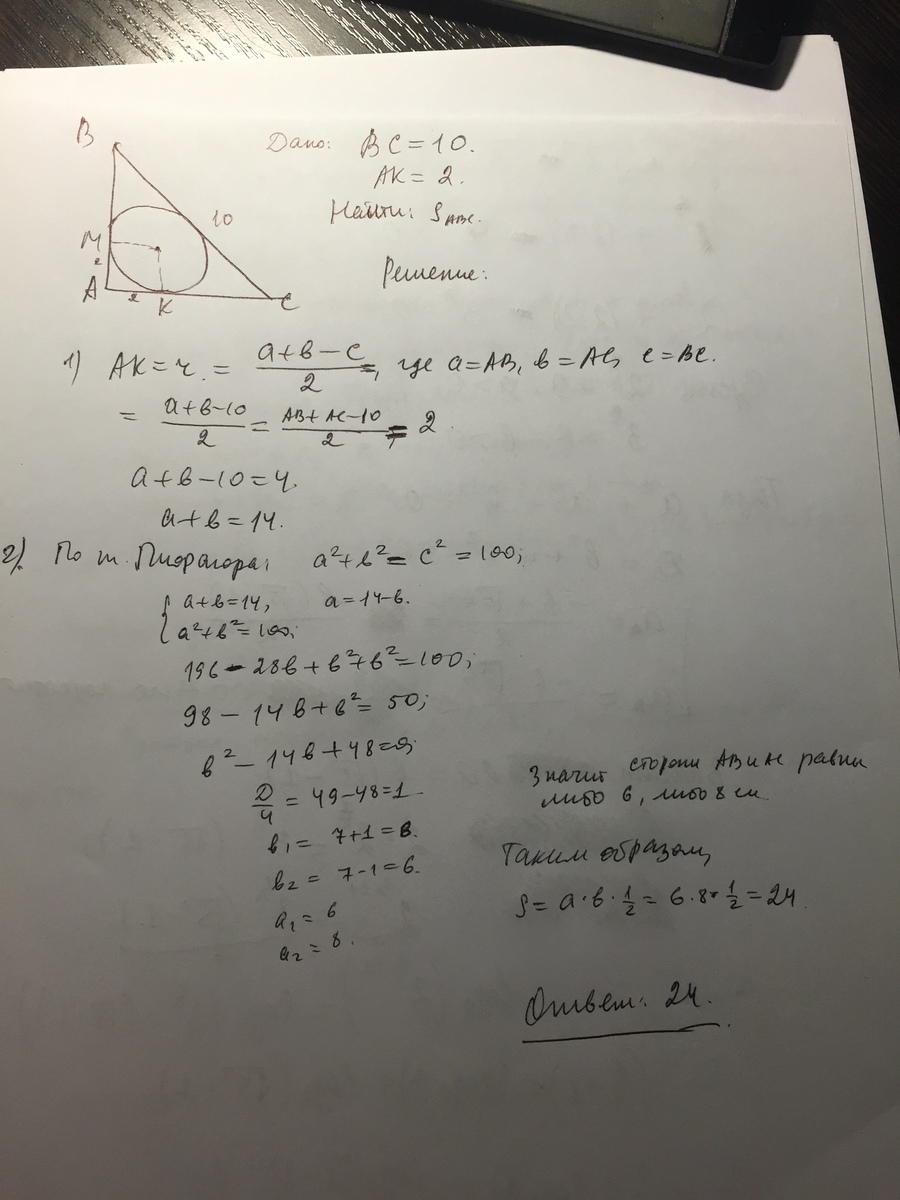 B
Дано: BC=10.
AK= 2.
Найти: S ABC.
10
M
2
A
2
K
C
Решение:
1) AK=r = (a+b-c)/2 =, где a=AB, b=AC, c=BC.
= (a+b-10)/2 = (AB+AC-10)/2 = 2.
a+b-10=4.
a+b=14.
2). По т. Пифагора: a²+b²= c²=100;
{ a+b=14, a=14-b.
a²+b²=100;
196-28b+b²+b²=100;
98-14b+b²= 50;
b²-14b+48=0;
D/4 = 49-48=1
b₁= 7+1=8.
b₂= 7-1=6.
a₁= 6
a₂= 8.
Значит стороны AB и AC равны
либо 6, либо 8 см.
Таким образом,
S= a·b·1/2= 6·8·1/2=24
Ответ: 24.